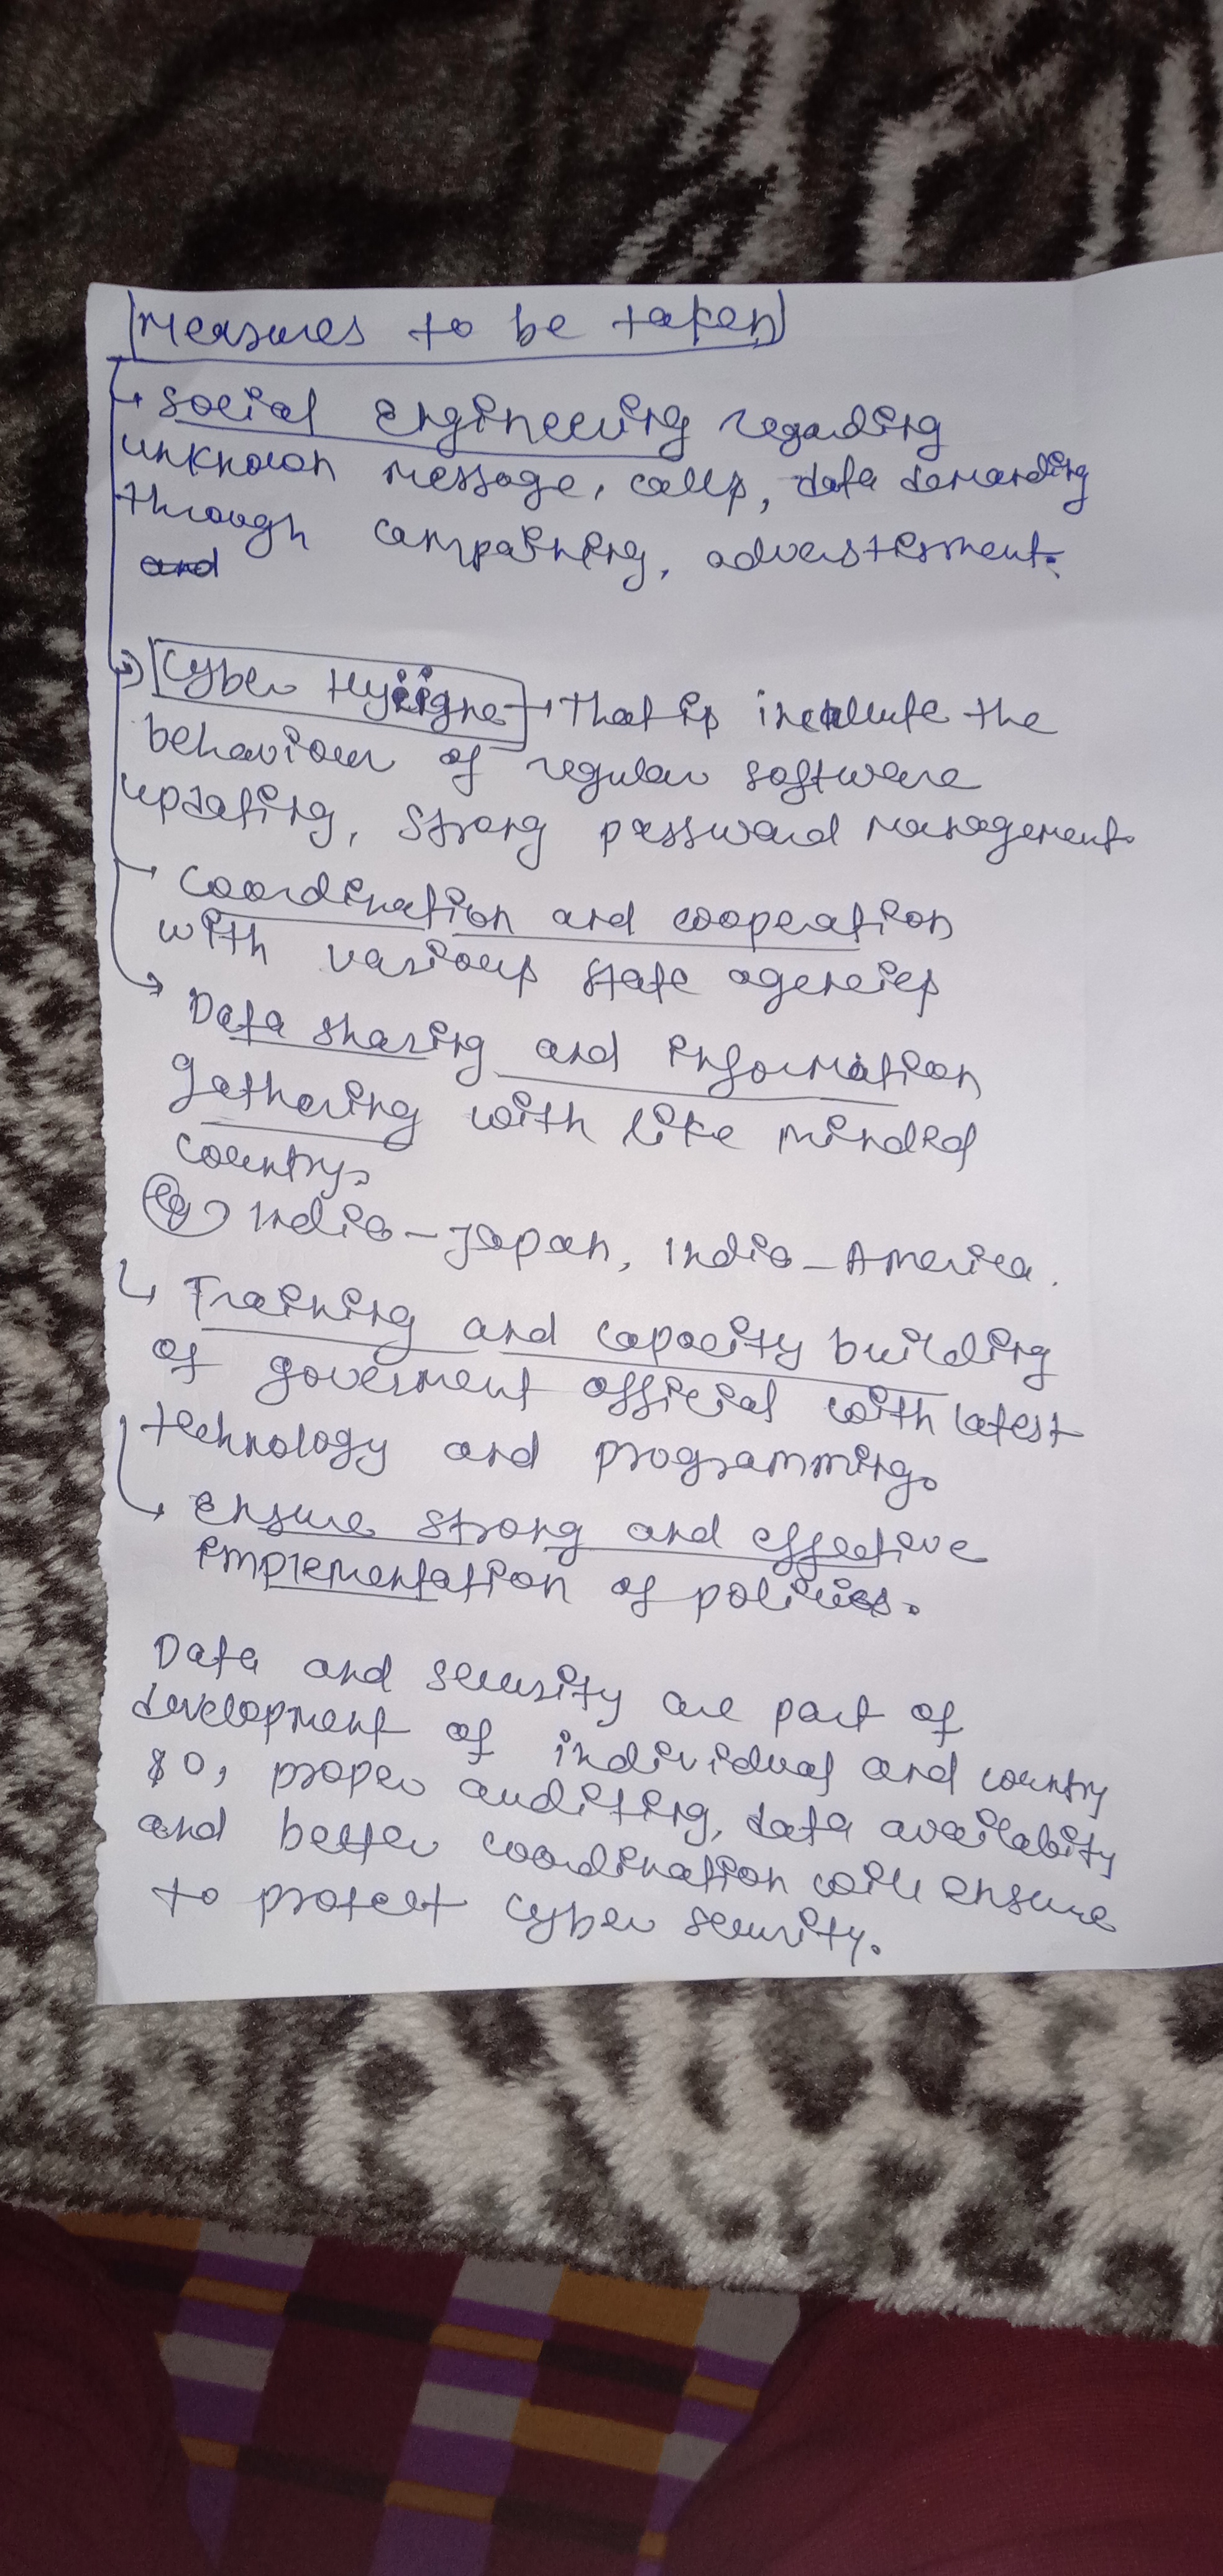 Measures to be taken
social engineering regarding
unknown message, calls, data demanding
through campaining, adverstisment.
and
Cyber Hyiigne → That is include the
behaviour of regular software
updating, strong password management.
coordination and cooperation
with various state agencies
Data sharing and information
gathering with like minded
country.
eg India-Japan, India-America.
Training and capacity building
of goverment official with latest
technology and programming.
ensure strong and effective
implementation of policies.
Data and security are part of
development of individual and country
so, proper auditing, data availabity
and better coordination will ensure
to protect cyber security.